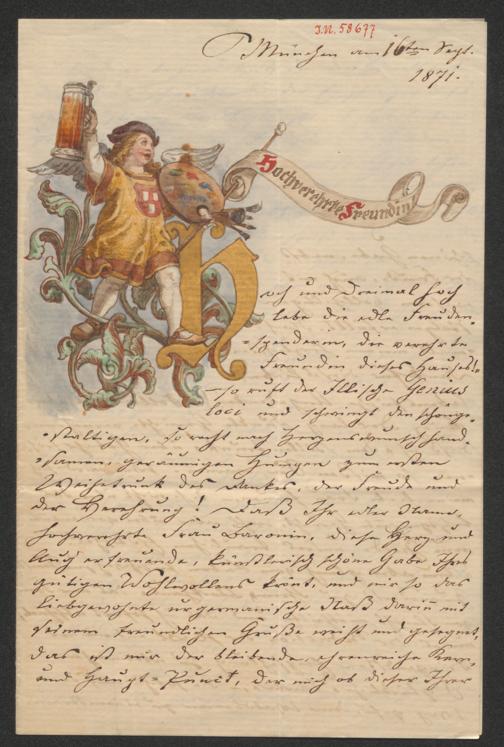 J.N. 58677
München am 16ten Sept.
1871.
Hochverehrte Freundin!
Hoch und dreimal hoch
lebe die edle Freuden-
-spenderin, die verehrte
Freundin dieses Hauses!"
– so ruft der Illische Genius
loci und schwingt den schönge-
-staltigen, so recht nach Herzenswunsch hand-
-samen, geräumigen Humpen zum ersten
Weihetrunk des Dankes, der Freude und
der Verehrung! Daß Ihr edler Name,
hochverehrte Frau Baronin, diese Herz und
Aug' erfreuende, künstlerisch schöne Gabe Ihres
gütigen Wohlwollens krönt, und mir so das
liebgewohnte urgermanische Naß darin mit
seinem freundlichen Gruße weiht und gesegnet,
das ist mir der bleibende, ehrenreiche Kern-
und Haupt-Punct, der mich ob dieser Ihrer